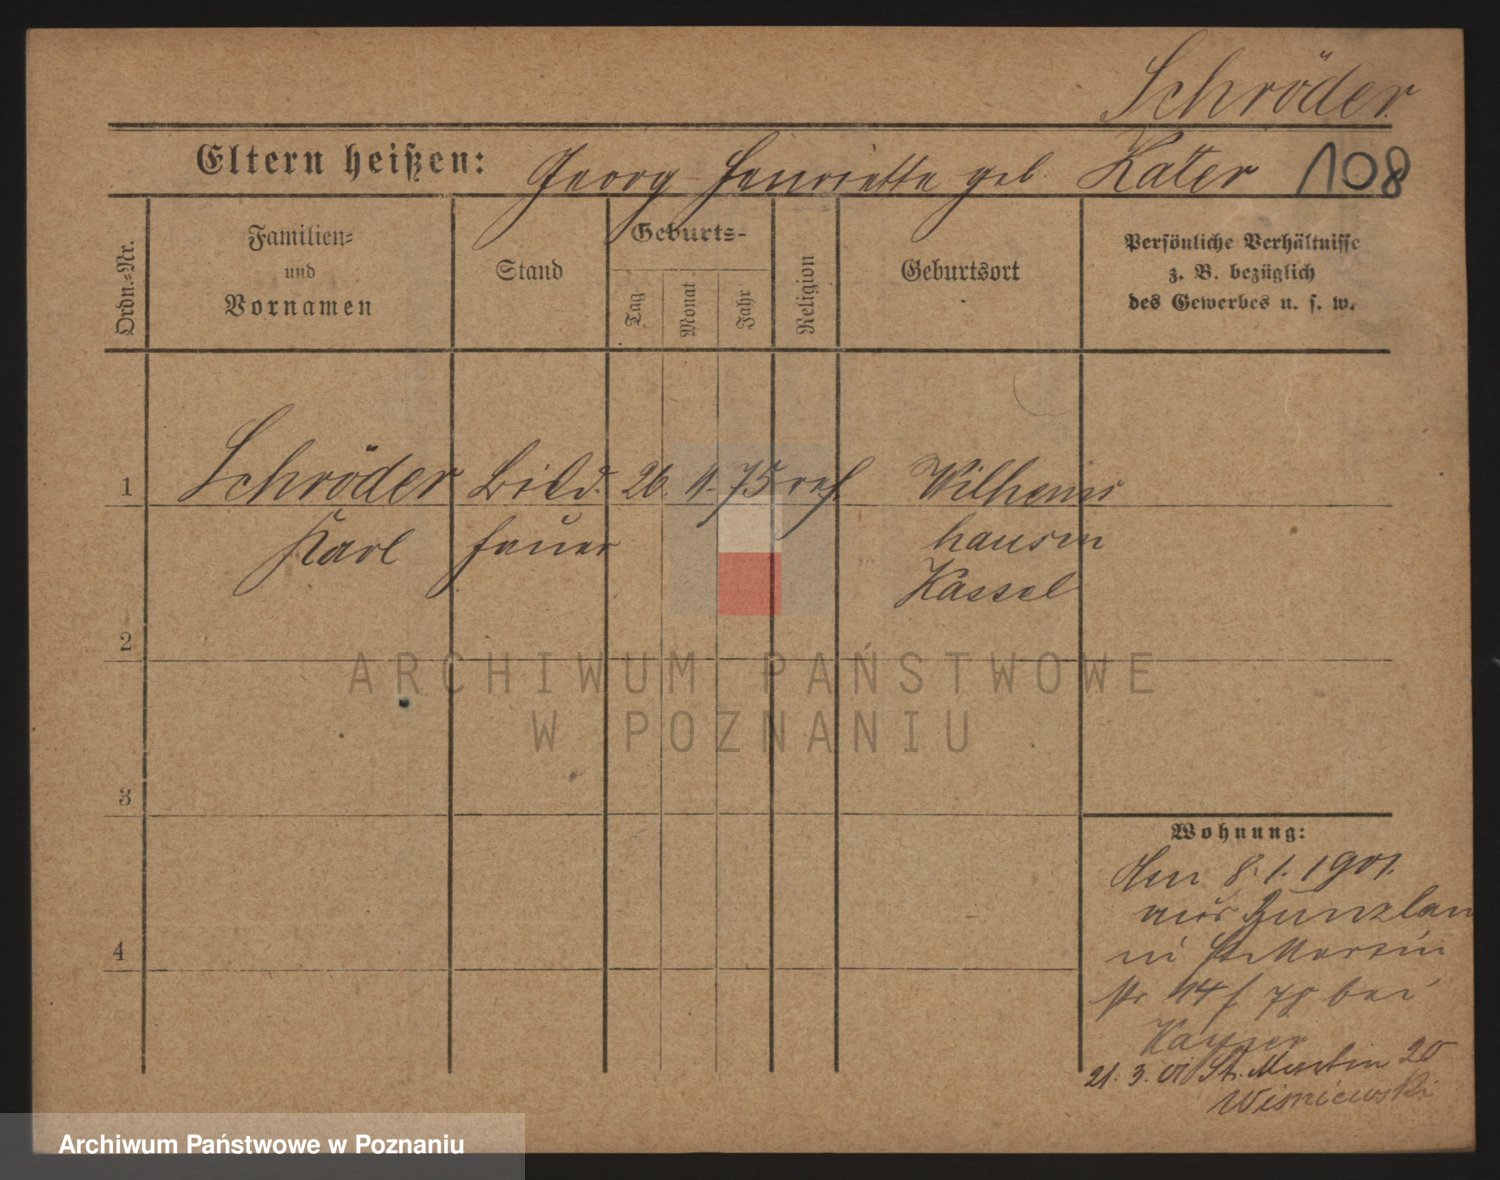 Schröder
Eltern heißen: Georg Henriette geb. Kater 108
Ordn.-Nr.
Familien- und Vornamen
Stand
Geburts-
Tag
Monat
Jahr
Religion
Geburtsort
Persönliche Verhältnisse
z. B. bezüglich
des Gewerbes u. s. w.
1 Schröder Bild. 26. 11. 75 ref. Wilhems
Karl hauer hausen
Kassel
2
ARCHIWUM PAŃSTWOWE
W POZNANIU
3
Wohnung:
Den 8.1.1901.
aus Bunzlau
in St Martin
str 44 bei
4
Kayser
21. 3. 01 St. Martin 20
Wisniewski
Archiwum Państwowe w Poznaniu